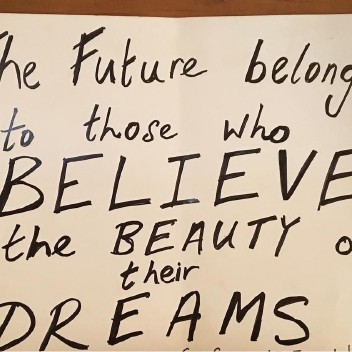 The Future belong
to those who
BELIEVE
the BEAUTY o
their
DREAMS